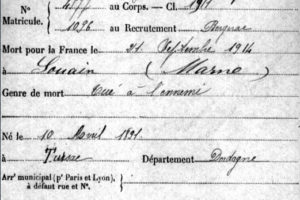 N° 477 au Corps. — Cl. 1911
Matricule. 1096 au Recrutement Bergerac
Mort pour la France le 27 Septembre 1914
à Souain (Marne)
Genre de mort Tué à l'ennemi
Né le 10 Avril 1891
à Département Dordogne
Arrt municipal (pr Paris et Lyon),
à défaut rue et N°.